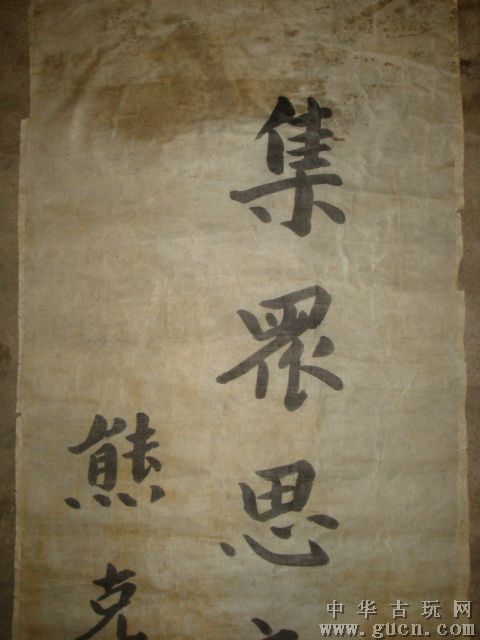 集眾思
熊克
中华古玩网
www.gucn.com